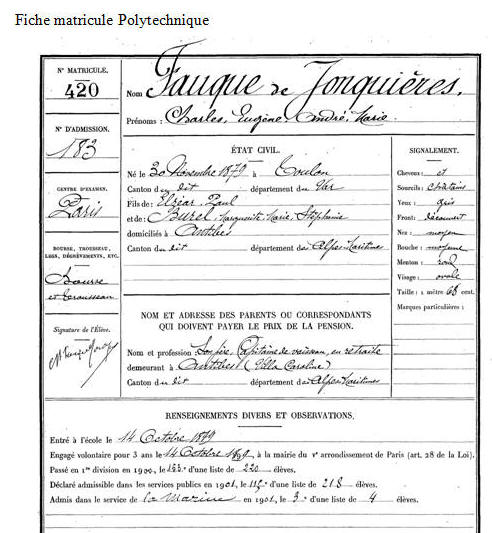 Fiche matricule Polytechnique
N° MATRICULE.
420
N° D'ADMISSION.
183
CENTRE D'EXAMEN.
Paris
BOURSE, TROUSSEAU,
LEGS, DÉGRÈVEMENTS, ETC.
Bourse
et trousseau
Signature de l'Élève.
Nom Fauque de Jonquières.
Prénoms : Charles, Eugène, André, Marie.
ÉTAT CIVIL.
Né le 30 Novembre 1879 à Toulon
Canton du dit département du Var
Fils de Elzéar, Paul
et de Burel, Marguerite, Marie, Stéphanie
domiciliés à Antibes
Canton du dit département des Alpes Maritimes
SIGNALEMENT.
Cheveux : et
Sourcils : châtains
Yeux : gris
Front : découvert
Nez : moyen
Bouche : moyenne
Menton : rond
Visage : ovale
Taille : 1 mètre 68 cent.
Marques particulières :
NOM ET ADRESSE DES PARENTS OU CORRESPONDANTS
QUI DOIVENT PAYER LE PRIX DE LA PENSION.
Nom et profession Son père, Capitaine de vaisseau, en retraite
demeurant à Antibes (Villa Caroline)
Canton du dit département des Alpes Maritimes
RENSEIGNEMENTS DIVERS ET OBSERVATIONS.
Entré à l'école le 14 Octobre 1899
Engagé volontaire pour 3 ans le 14 Octobre 1899, à la mairie du Ve arrondissement de Paris (art. 28 de la Loi).
Passé en 1re division en 1900, le d'une liste de 220 élèves.
Déclaré admissible dans les services publics en 1901, le d'une liste de 218 élèves.
Admis dans le service de la Marine en 1901, le 3e d'une liste de 4 élèves.